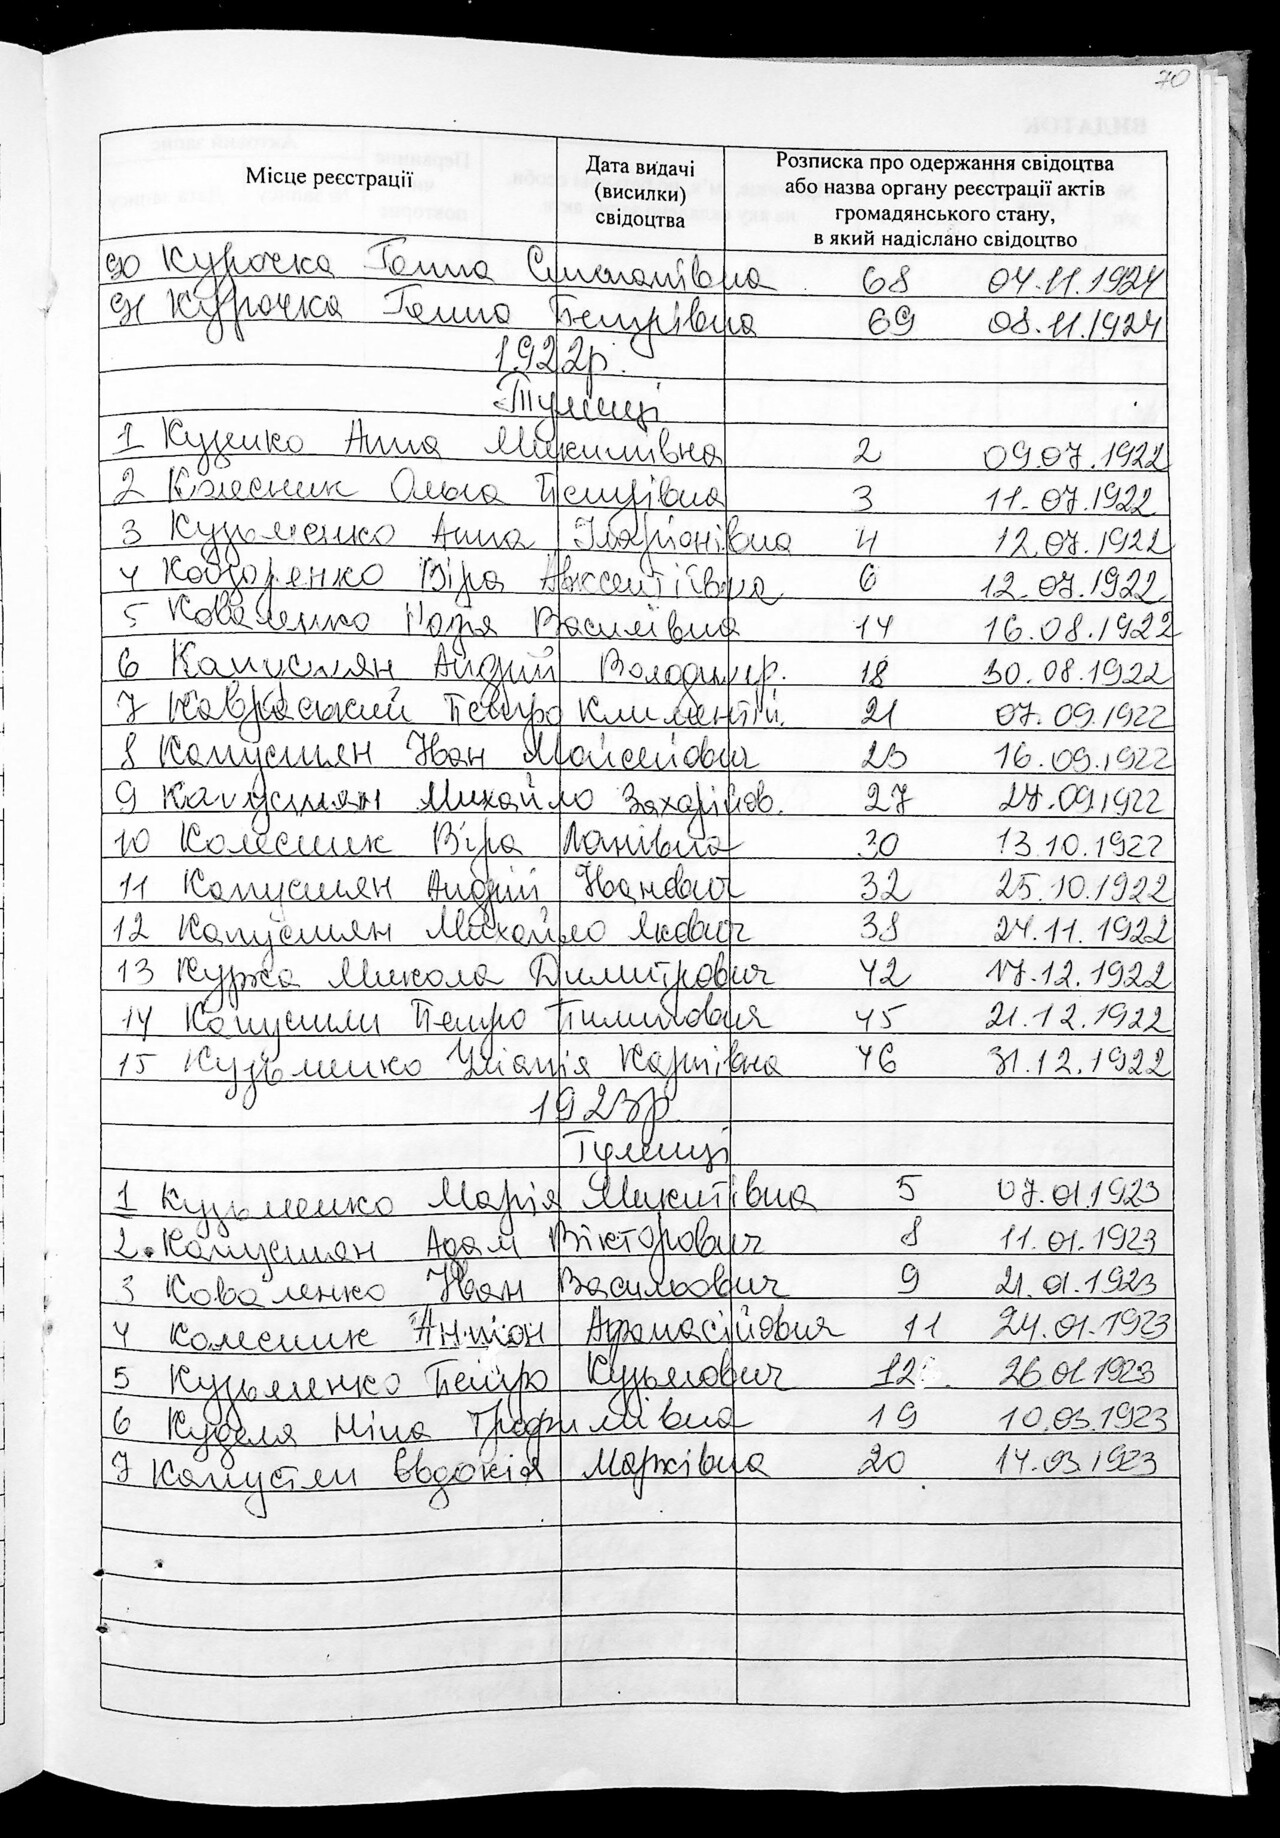 70
Місце реєстрації
Дата видачі
(висилки)
свідоцтва
Розписка про одержання свідоцтва
або назва органу реєстрації актів
громадянського стану,
в який надіслано свідоцтво
90 Курочка Ганна Степанівна 68 04.11.1924
91 Курочка Ганна Петрівна 69 08.11.1924
1922р.
Тулинці
1 Куценко Анна Микитівна 2 09.07.1922
2 Колесник Ольга Петрівна 3 11.07.1922
3 Кузьменко Анна Іларіонівна 4 12.07.1922
4 Віра Авксентіївна 6 12.07.1922
5 Коваленко Надія Василівна 14 16.08.1922
6 Капустян Андрій Володимир. 18 30.08.1922
7 Петро Климентій. 21 07.09.1922
8 Капустян Іван Мойсейович 23 16.09.1922
9 Капустян Михайло Захарійов. 27 27.09.1922
10 Колесник Віра 30 13.10.1922
11 Капустян Андрій Іванович 32 25.10.1922
12 Капустян Михайло Якович 38 24.11.1922
13 Куржа Микола Димитрович 42 17.12.1922
14 Петро Пилипович 45 21.12.1922
15 Кузьменко Уліанія Карпівна 46 31.12.1922
1923р
Тулинці
1 Кузьменко Марія Микитівна 5 07.01.1923
2. Капустян Адам Вікторович 8 11.01.1923
3 Коваленко Іван Васильович 9 21.01.1923
4 Колесник Антон Афанасійович 11 24.01.1923
5 Кузьменко Петро Кузьмович 12 26.01.1923
6 Куделя Ніна Трофимівна 19 10.03.1923
7 Євдокія Марківна 20 14.03.1923